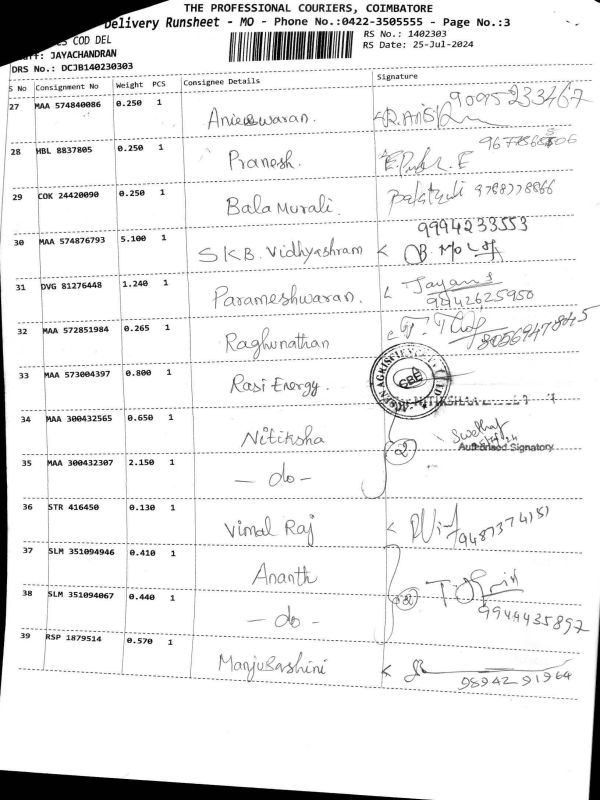 THE PROFESSIONAL COURIERS, COIMBATORE
Delivery Runsheet - MO - Phone No.:0422-3505555 - Page No.:3
COD DEL
RS No.: 1402303
JAYACHANDRAN
RS Date: 25-Jul-2024
DRS No.: DCJB140230303
S No Consignment No Weight PCS Consignee Details Signature
27 MAA 574840086 0.250 1 9095233467
28 HBL 8837805 0.250 1 Pranesh.
29 COK 24420090 0.250 1 Bala Murali. 9788778866
9994233553
30 MAA 574876793 5.100 1 SKB. Vidhyashram
31 DVG 81276448 1.240 1 Parameshwaran.
9942625950
32 MAA 572851984 0.265 1 Raghunathan 8056947845
33 MAA 573004397 0.800 1 Rasi Energy.
34 MAA 300432565 0.650 1 Nitiksha 2
Authorised Signatory
35 MAA 300432307 2.150 1 - do -
36 STR 416450 0.130 1 Vimal Raj 9487374151
37 SLM 351094946 0.410 1 Ananth
38 SLM 351094067 0.440 1 - do - 9944435897
39 RSP 1879514 0.570 1 Manjubashini
9894291964